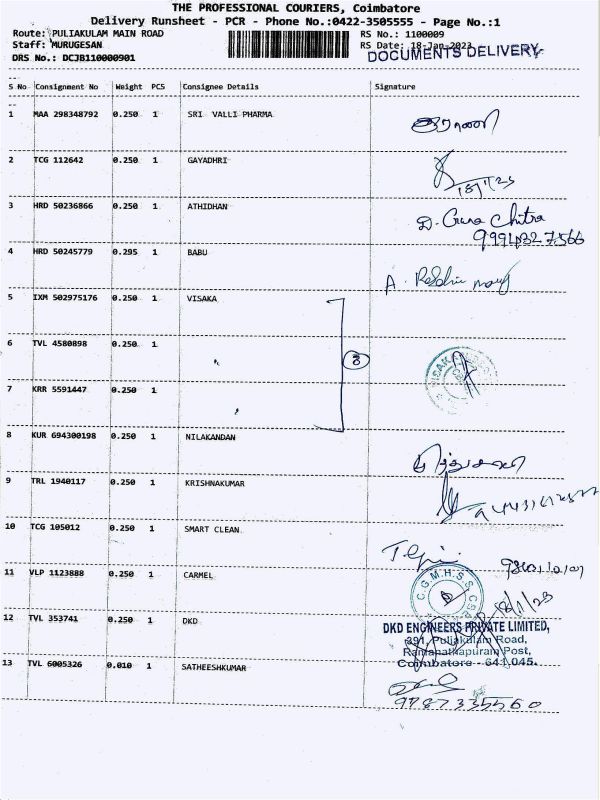 THE PROFESSIONAL COURIERS, Coimbatore
Delivery Runsheet - PCR - Phone No.:0422-3505555 - Page No.:1
Route: PULIAKULAM MAIN ROAD
Staff: MURUGESAN
DRS No.: DCJB110000901
RS No.: 1100009
RS Date: 18-Jan-2023
DOCUMENTS DELIVERY
S No Consignment No Weight PCS Consignee Details Signature
1 MAA 298348792 0.250 1 SRI VALLI PHARMA
2 TCG 112642 0.250 1 GAYADHRI
18/1/23
3 HRD 50236866 0.250 1 ATHIDHAN D. Guna Chitra
9994327566
4 HRD 50245779 0.295 1 BABU A.
5 IXM 502975176 0.250 1 VISAKA
6 TVL 4580898 0.250 1
3
7 KRR 5591447 0.250 1
8 KUR 694300198 0.250 1 NILAKANDAN
9 TRL 1940117 0.250 1 KRISHNAKUMAR
10 TCG 105012 0.250 1 SMART CLEAN
11 VLP 1123888 0.250 1 CARMEL C.G.M.H.S.S
12 TVL 353741 0.250 1 DKD
DKD ENGINEERS PRIVATE LIMITED,
391, Puliakulam Road,
Ramanathapuram Post,
Coimbatore - 641 045.
13 TVL 6005326 0.010 1 SATHEESHKUMAR
9787335560